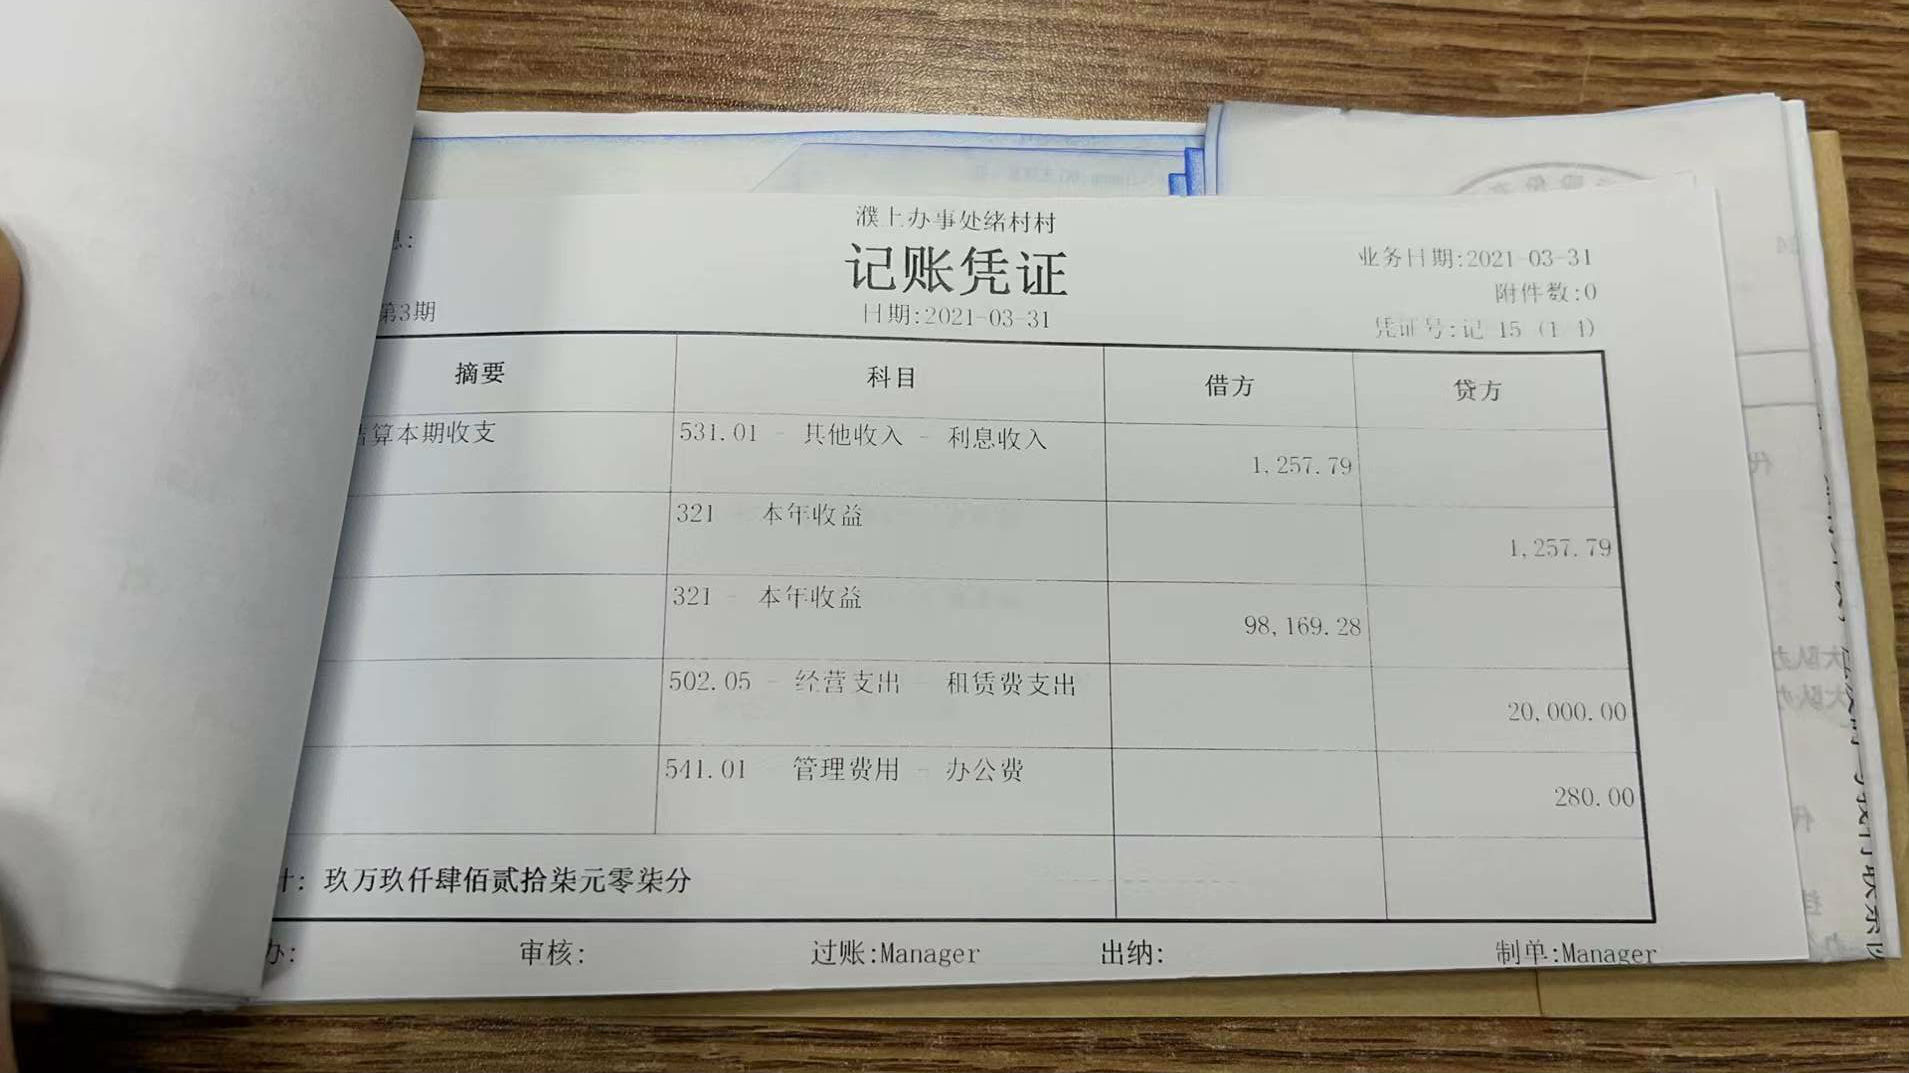 濮上办事处绪村村
记账凭证
日期:2021-03-31
业务日期:2021-03-31
附件数:0
凭证号:记 15 (1 1)
第3期
摘要 科目 借方 贷方
算本期收支 531.01 - 其他收入 - 利息收入 1,257.79
321 - 本年收益 1,257.79
321 - 本年收益 98,169.28
502.05 - 经营支出 - 租赁费支出 20,000.00
541.01 - 管理费用 - 办公费 280.00
计: 玖万玖仟肆佰贰拾柒元零柒分
办: 审核: 过账:Manager 出纳: 制单:Manager